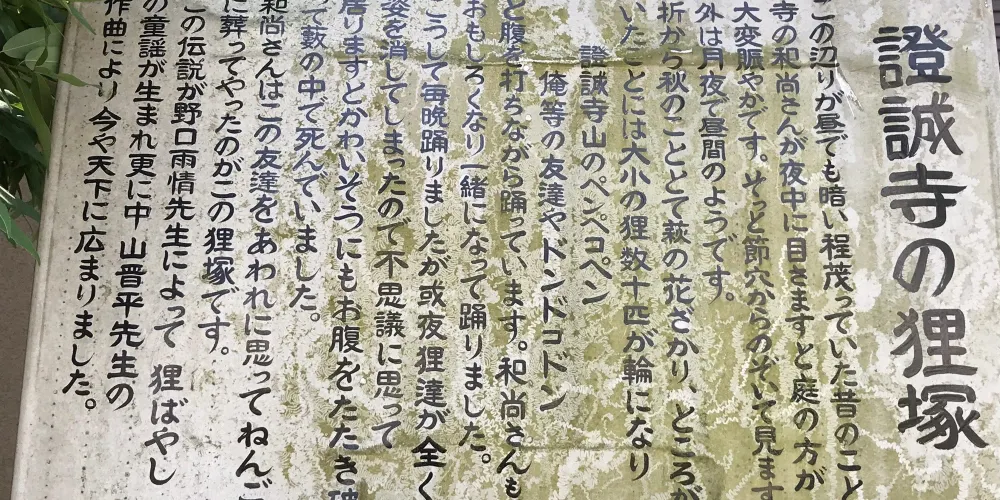 證誠寺の狸塚
この辺りが昼でも暗い程茂っていた昔のこと
寺の和尚さんが夜中に目さますと庭の方が
大変賑やかです。そっと節穴からのぞいて見ます
外は月夜で昼間のようです。
折から秋のこととて萩の花ざかり、ところが
いたことには大小の狸数十匹が輪になり
證誠寺山のペンペコペン
俺等の友達やドンドコドン
と腹を打ちながら踊っています。和尚さんも
おもしろくなり一緒になって踊りました。
こうして毎晩踊りましたが或夜狸達が全く
姿を消してしまったので不思議に思って
居りますとかわいそうにもお腹をたたき破
って藪の中で死んでいました。
和尚さんはこの友達をあわれに思ってねんご
に葬ってやったのがこの狸塚です。
この伝説が野口雨情先生によって 狸ばやし
の童謡が生まれ更に中山晋平先生の
作曲により今や天下に広まりました。